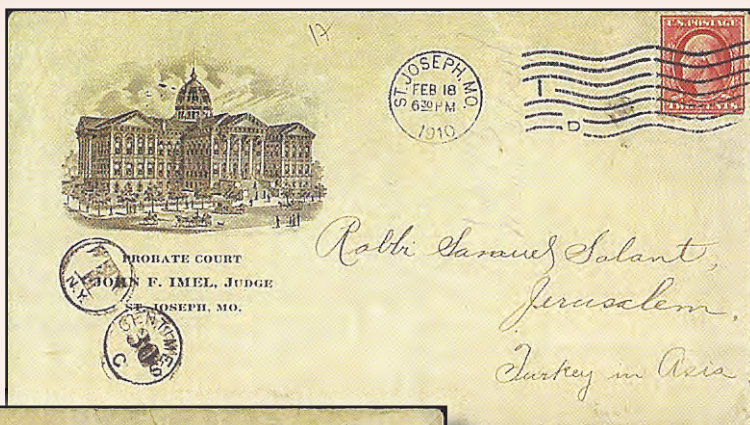 17
ST. JOSEPH, MO.
FEB 18
6 30 PM
1910
D
U.S. POSTAGE
TWO CENTS
PROBATE COURT
JOHN F. IMEL, JUDGE
ST. JOSEPH, MO.
N.Y.
CENTIMES
30
C
Rabbi Samuel Salant,
Jerusalem,
Turkey in Asia